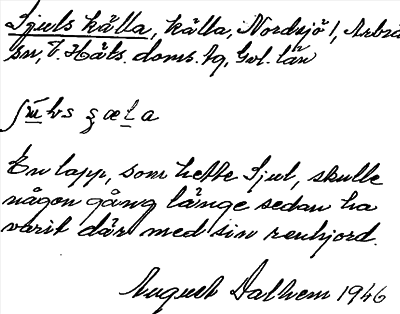 Sjuls källa, källa, Nordsjö 1, Arbrå
sn, V. Häls. doms. tg, Gvl. län
ʃu̲l̲s ʂæl̲a
En lapp, som hette Sjul, skulle
någon gång länge sedan ha
varit där med sin renhjord.
August Dalhem 1946